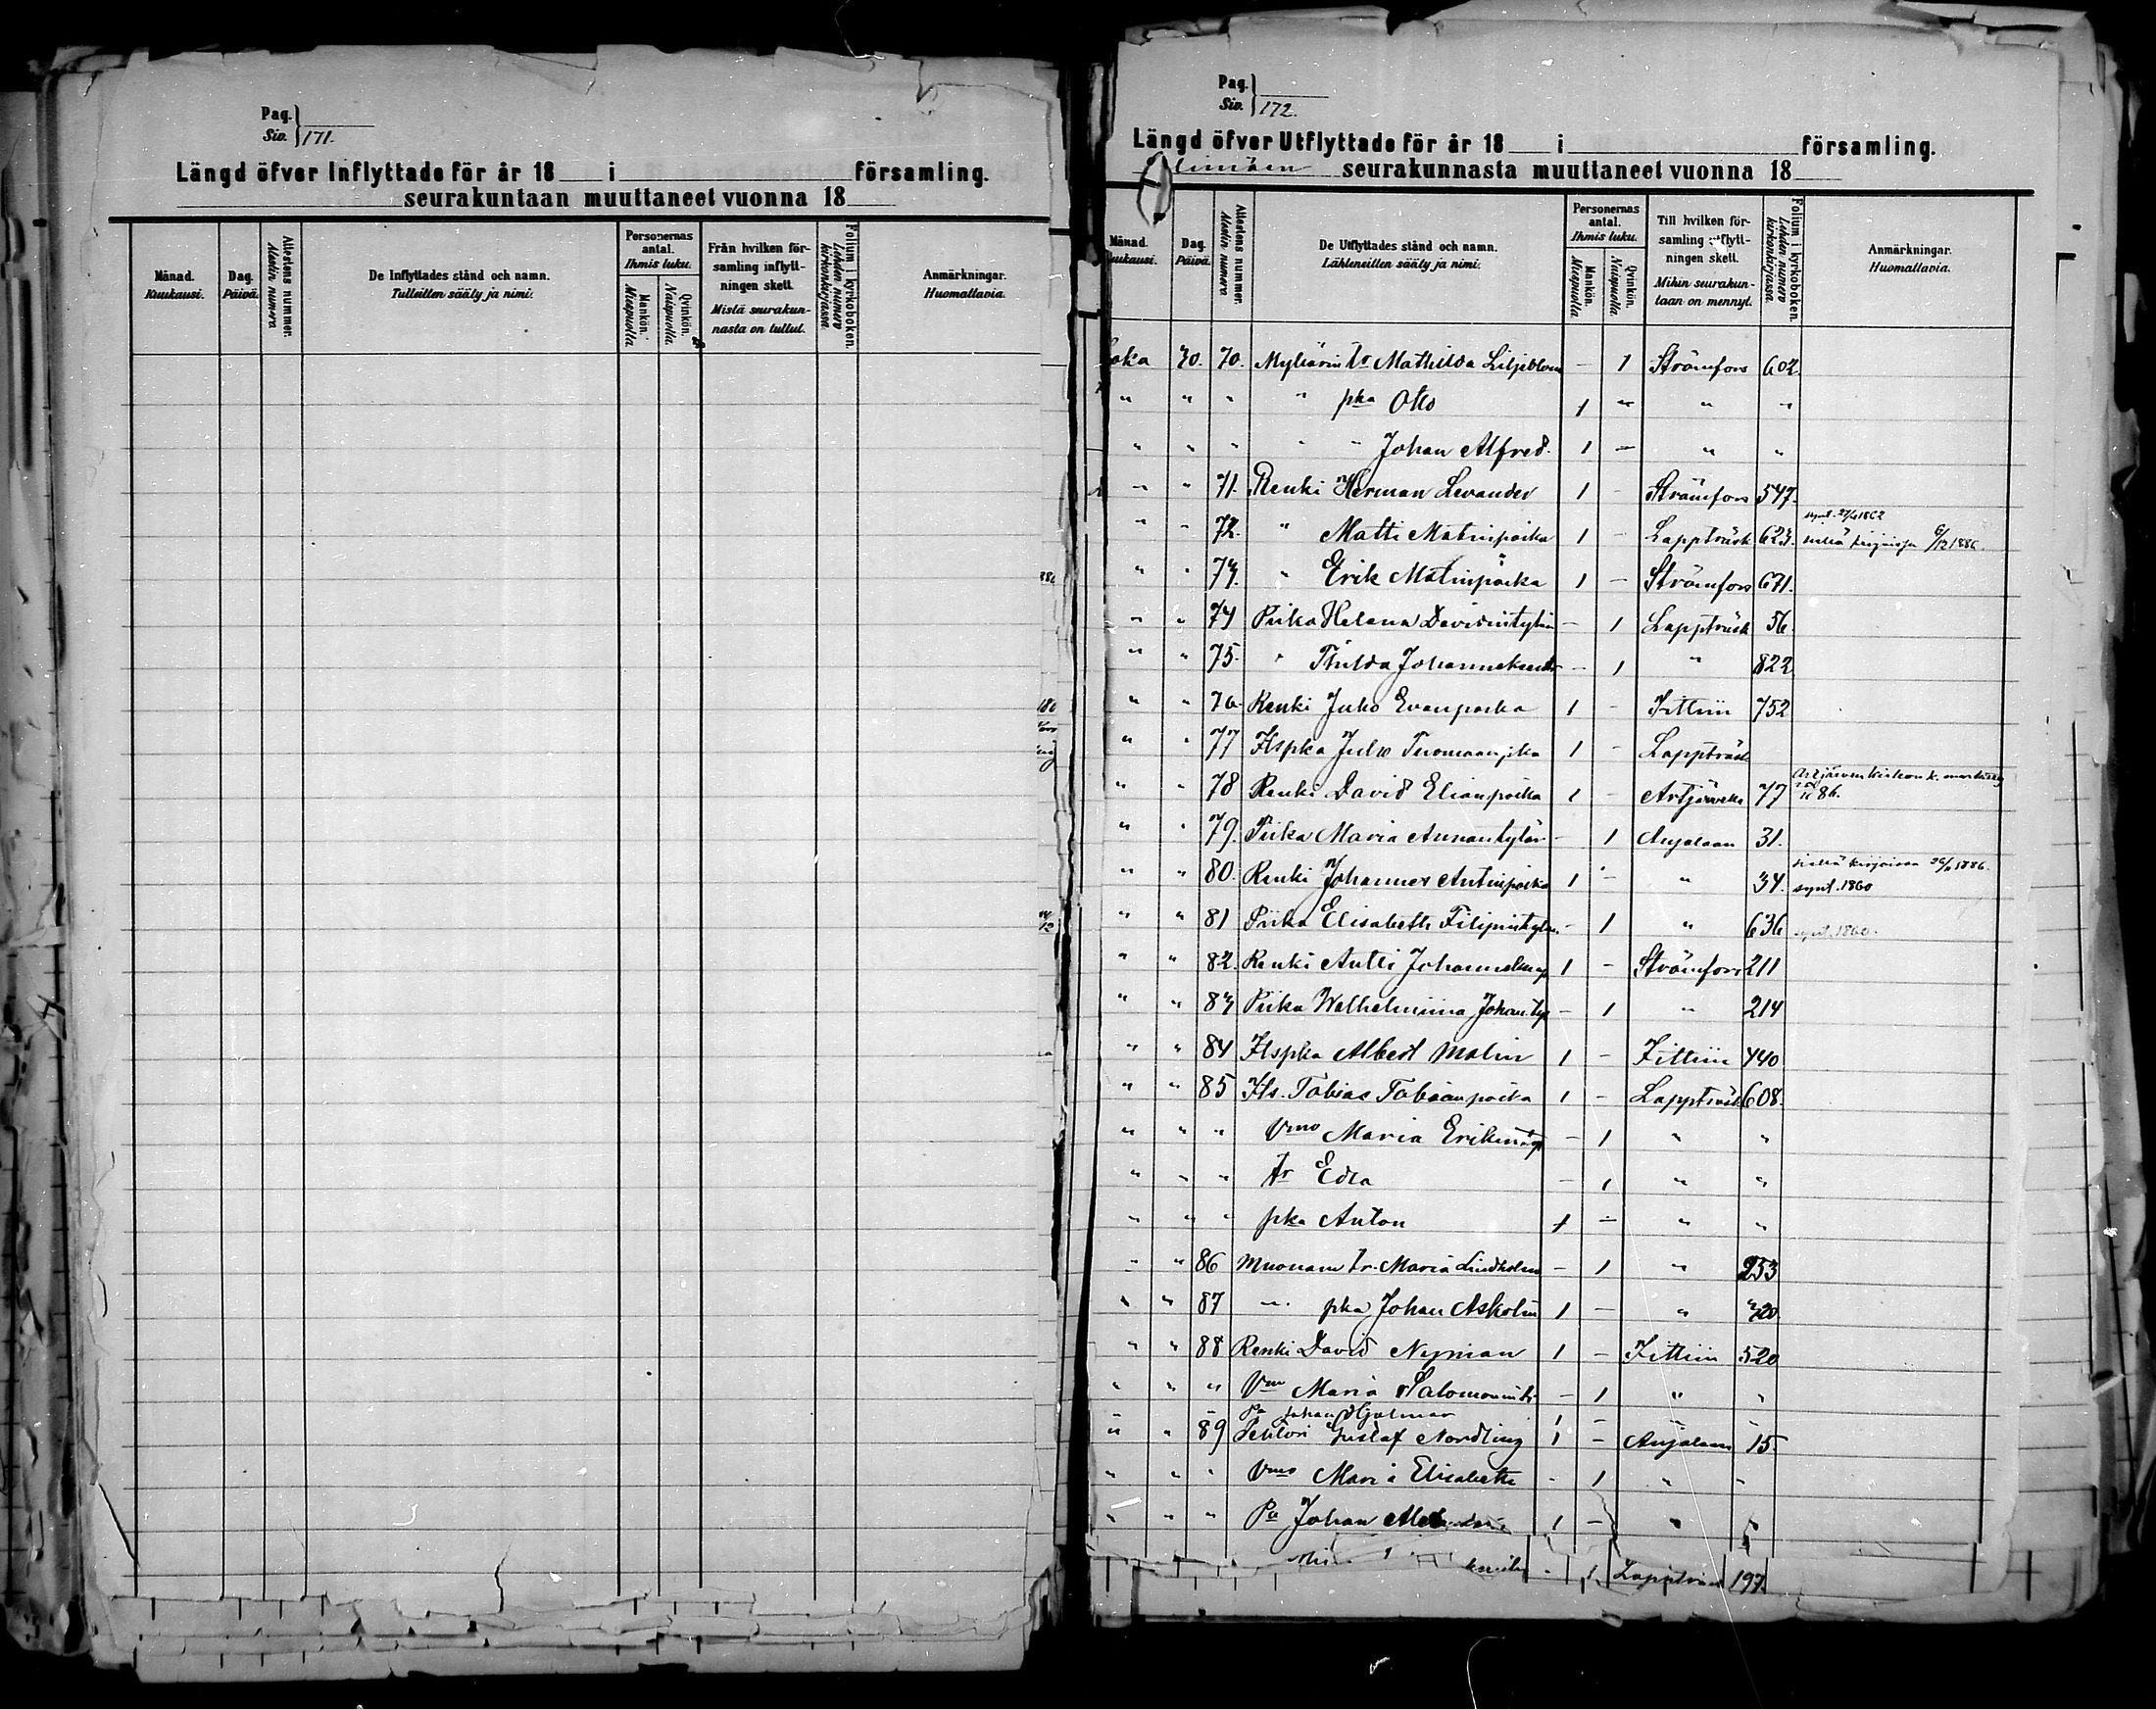 Pag.
Siv. 171.
Längd öfver Inflyttade för år 18 i församling.
seurakuntaan muuttaneet vuonna 18
Månad. Kuukausi.
Dag. Päivä.
Attestens nummer. Alestin numero
De Inflyttades stånd och namn. Tulleitten sääty ja nimi.
Personernas antal. Ihmis luku.
Mankön. Miespuolia.
Qvinkön. Naispuolia.
Från hvilken församling inflyttningen skett. Mistä seurakunnasta on tullut.
Folium i kyrkoboken. Lehden numero kirkonkirjassa.
Anmärkningar. Huomattavia.
Pag.
Siv. 172.
Längd öfver Utflyttade för år 18 i församling.
Elimäen seurakunnasta muuttaneet vuonna 18
Månad. Kuukausi.
Dag. Päivä.
Attestens nummer. Alestin numero
De Utflyttades stånd och namn. Lähteneitten sääty ja nimi.
Personernas antal. Ihmis luku.
Mankön. Miespuolia
Qvinkön. Naispuolia.
Till hvilken församling utflyttningen skett. Mihin seurakuntaan on mennyt.
Folium i kyrkoboken. Lehden numero kirkonkirjassa.
Anmärkningar. Huomattavia.
Loka 30. 70. Myllärin tr Mathilda Liljeblom - 1 Strömfors 602.
" " " " pka Otto 1 " " "
" " " " " Johan Alfred. 1 - " "
" " 71. Renki Herman Levander 1 - Strömfors 547.
" " 72. " Matti Matinpoika 1 - Lappträsk 623. synt. 1862 siellä kirjoissa 6/12 1886.
" " 73. " Erik Matinpoika 1 - Strömfors 671.
" " 74 Piika Helena Davidintytär - 1 Lappträsk 56
" " 75. " Thilda - 1 " 822
" " 76. Renki Juho Evanpoika 1 - Jittiin 752
" " 77 Itspka Juho Tuomaanpka 1 - Lappträsk
" " 78 Renki David Elianpoika 1 - Artjärvelle 77 86.
" " 79. Piika Maria Annantytär - 1 Anjalaan 31.
" " 80. Renki Johannes Antinpoika 1 - " 34. siellä kirjoissa 1886. synt. 1860
" " 81 Piika Elisabeth Filipintytär - 1 " 636 synt. 1860.
" " 82. Renki Antti 1 - Strömfors 211
" " 83 Piika Wilhelmiina Johan. ty - 1 " 214
" " 84 Itspka Albert Malin 1 - Jittiin 440
" " 85 Its. Tobias Tobiaanpoika 1 - Lappträsk 608.
" " " Vmo Maria - 1 " "
" " " tr Edla - 1 " "
" " " pka Anton 1 - " "
" " 86 Muonam. tr. Maria Lindholm - 1 " 253
" " 87 " pka Johan Askolin 1 - " 320.
" " 88 Renki David Nyman 1 - Jittiin 520
" " " Vmo Maria Salomonintr - 1 " "
Pa Johan Hjalmar 1 -
" " 89 Gustaf Nordling 1 - Anjalaan 15
" " " Vmo Maria Elisabeth - 1 " "
" " " Pa Johan 1 - " "
- 1 Lappträsk 197.